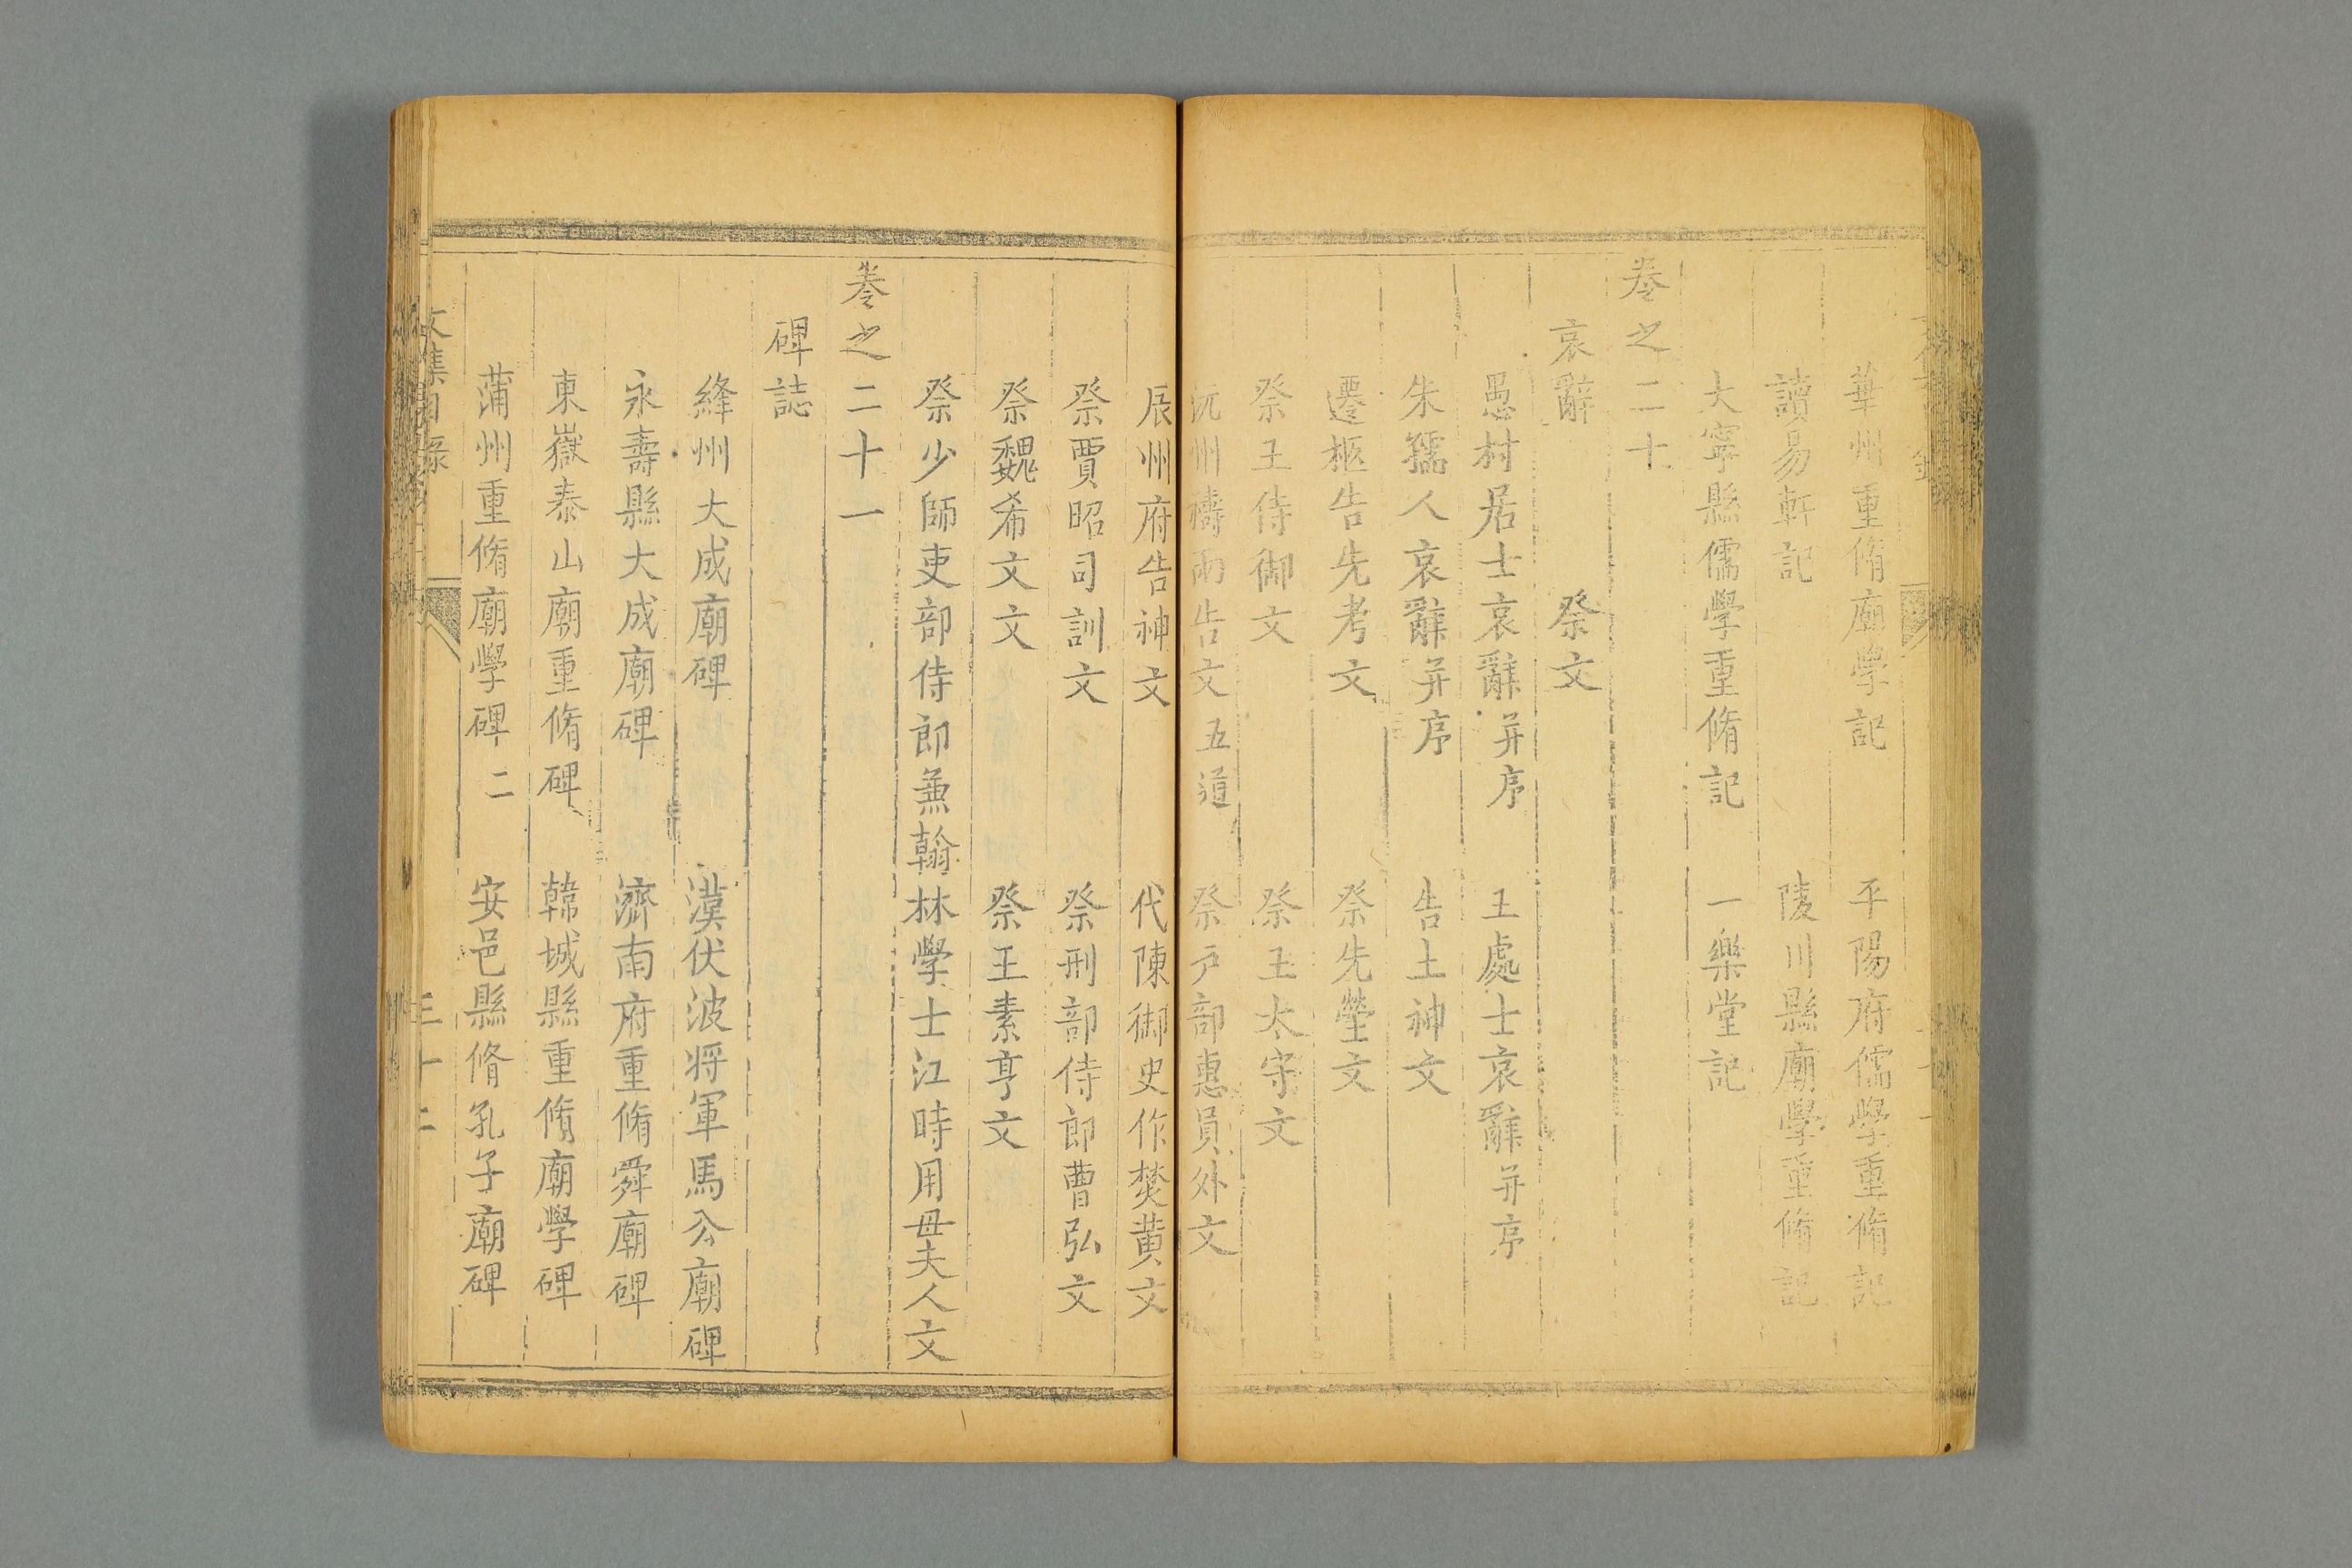 華州重脩廟學記　平陽府儒學重脩記
讀易軒記　陵川縣廟學重脩記
大寧縣儒學重脩記　一樂堂記
卷之二十
哀辭　祭文
愚村居士哀辭并序　王處士哀辭并序
朱孺人哀辭并序　告土神文
遷柩告先考文　祭先塋文
祭王侍御文　祭王太守文
沅州禱雨告文五道　祭戶部惠員外文
辰州府告神文　代陳御史作焚黃文
祭賈昭司訓文　祭刑部侍郎曹弘文
祭魏希文文　祭王素亨文
祭少師吏部侍郎兼翰林學士江時用母夫人文
卷之二十一
碑誌
絳州大成廟碑　漢伏波将軍馬公廟碑
永壽縣大成廟碑　濟南府重脩舜廟碑
東嶽泰山廟重脩碑　韓城縣重脩廟學碑
蒲州重脩廟學碑二　安邑縣脩孔子廟碑
文集目錄　三十二